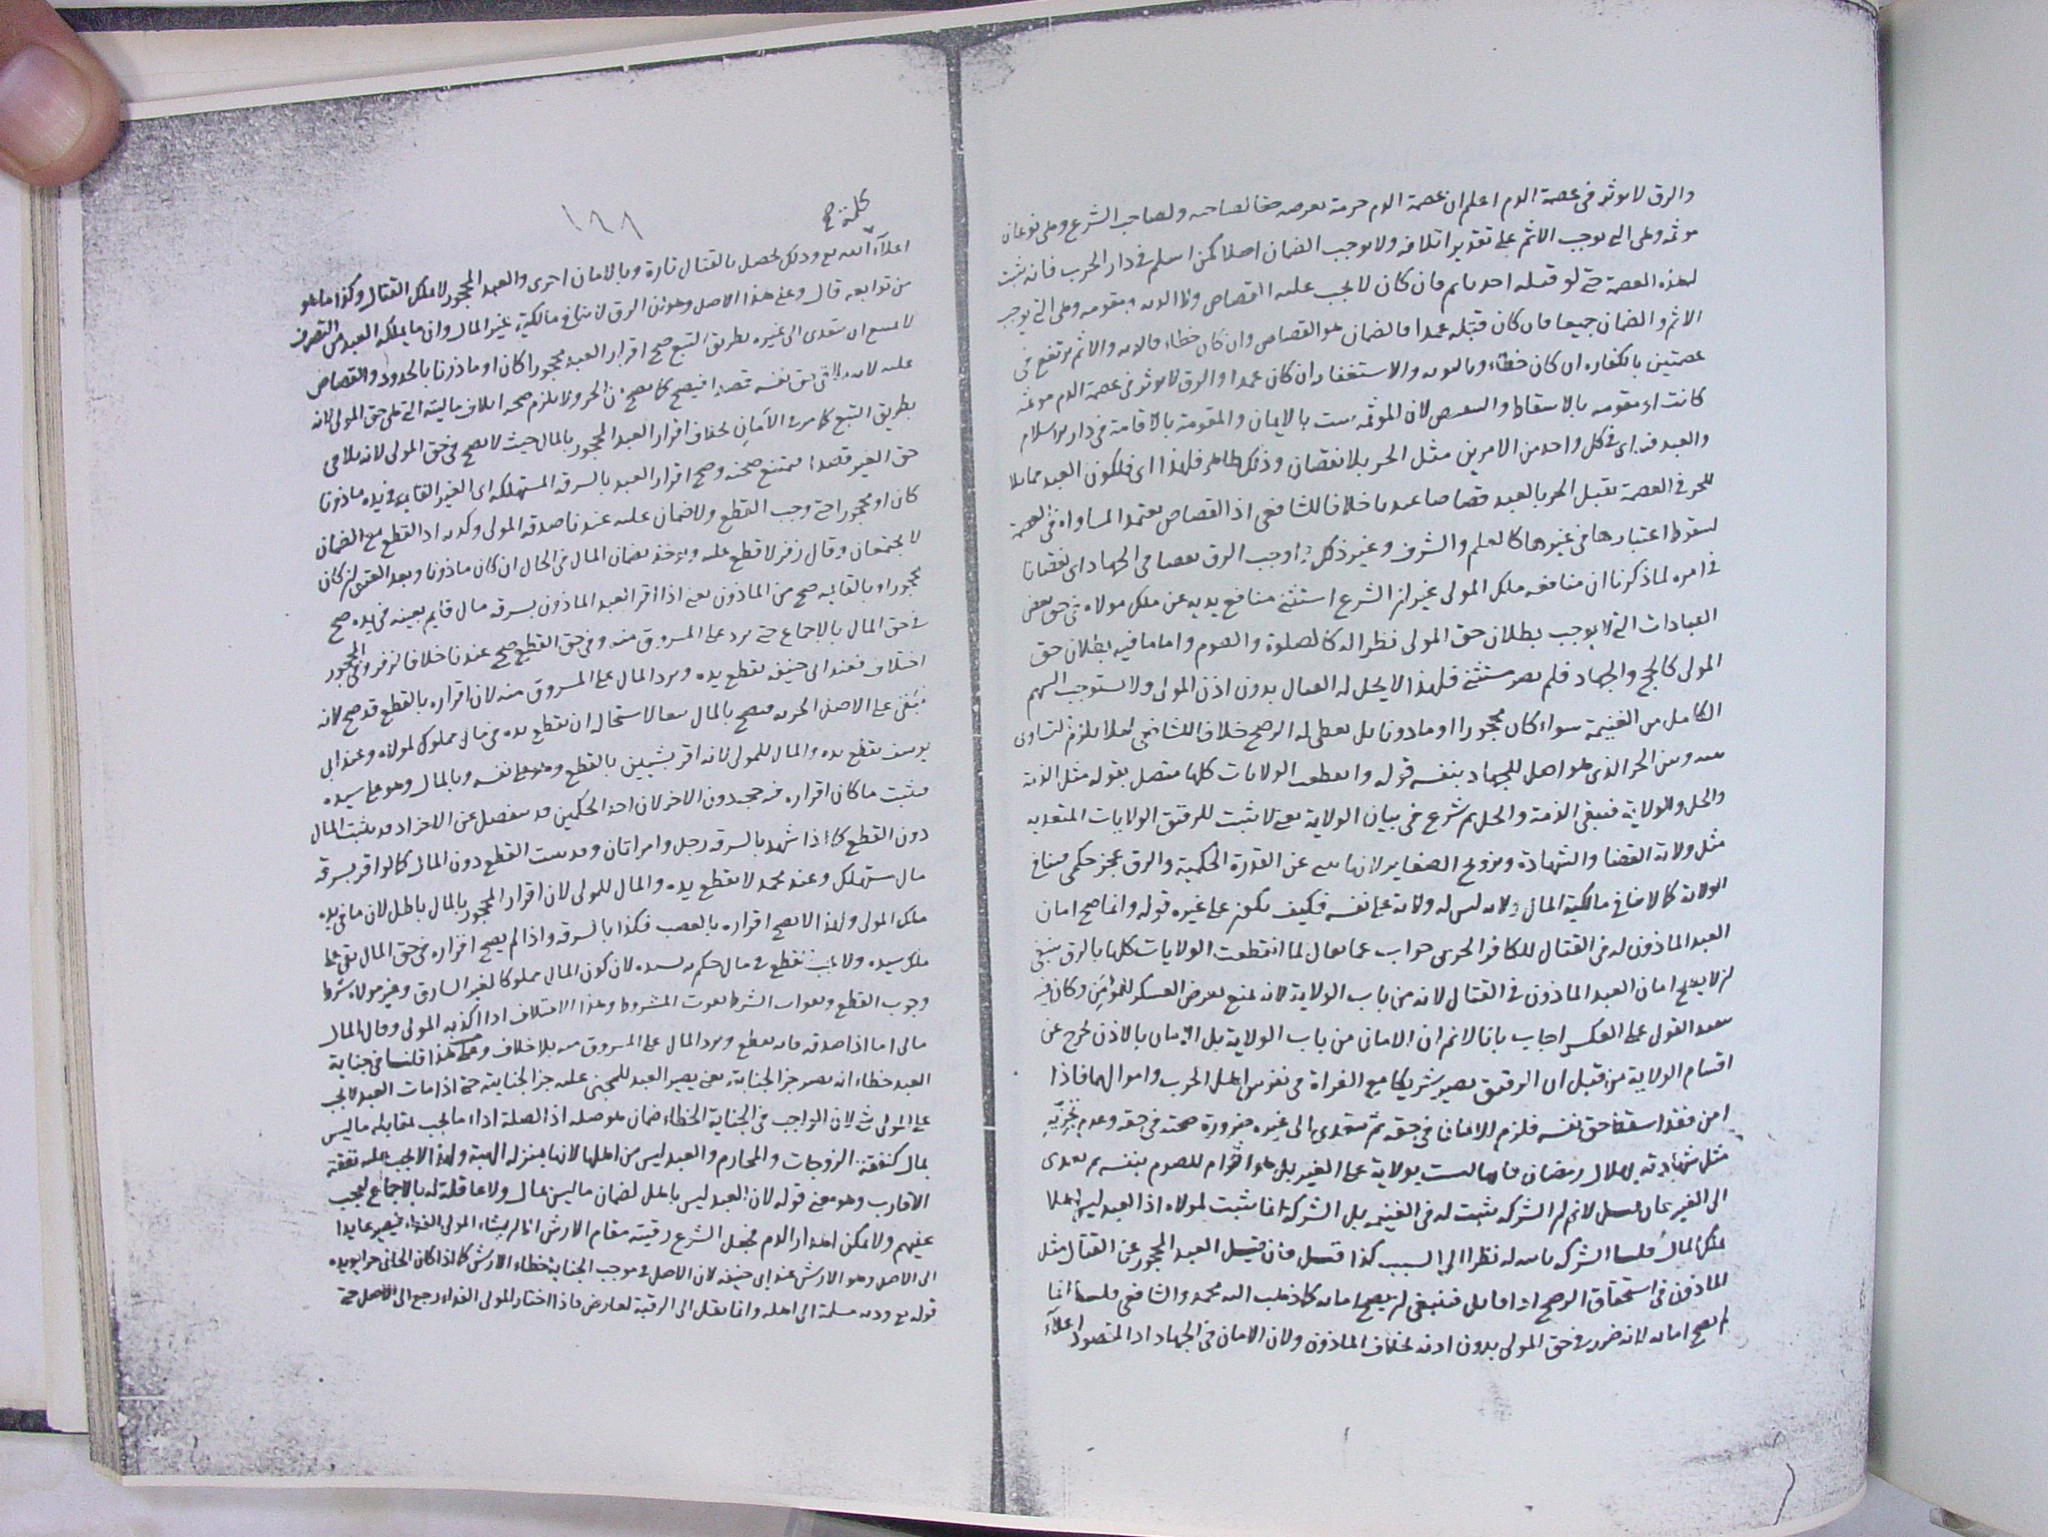 والرق لا يوثر في عصمة الدم اعلم ان عصمة الدم حرمة تعرضه حقا لصاحبه ولصاحب الشرع وهي نوعان
موثمة وهي التي توجب الاثم على تقدير اتلافه ولا توجب الضمان اصلا كمن اسلم في دار الحرب فانه يثبت
لهذه العصمة حتى لو قتله احد ياثم وان كان لا يجب عليه القصاص ولا الدية ومقومة وهي التي توجب
الاثم والضمان جميعا فان كان قتله عمدا فالضمان هو القصاص وان كان خطاء فالدية والاثم يرتفع في
عصمتين بالكفارة ان كان خطاء وبالتوبة والاستغفار ان كان عمدا والرق لا يوثر في عصمة الدم موثمة
كانت او مقومة بالاسقاط والتنقيص لان الموثمة تثبت بالايمان والمقومة بالاقامة في دار الاسلام
والعبد فيه اي في كل واحد من الامرين مثل الحر بلا نقصان وذلك ظاهر فلهذا اي فلكون العبد مماثلا
للحر في العصمة يقتل الحر بالعبد قصاصا عندنا خلافا للشافعي اذ القصاص يعتمد المساواة في العصمة
لسقوط اعتبارها في غيرها كالعلم والشرف وغير ذلك واوجب الرق نقصا في الجهاد اي نقصانا
في امره لما ذكرنا ان منافعه ملك المولى غير ان الشرع استثنى منافع يديه عن ملك مولاه في حق بعض
العبادات التي لا يوجب بطلان حق المولى نظرا له كالصلوة والصوم واما ما فيه بطلان حق
المولى كالحج والجهاد فلم يصر مستثنى فلهذا لا يحل له القتال بدون اذن المولى ولا يستوجب السهم
الكامل من الغنيمة سواء كان محجورا او ماذونا بل يعطى له الرضخ خلافا للشافعي لئلا يلزم التساوي
بينه وبين الحر الذي هو اهل للجهاد بنفسه قوله وانقطعت الولايات كلها متصل بقوله مثل الذمة
والحل والولاية فينبغي الذمة والحل ثم شرع في بيان الولاية يعني لا تثبت للرقيق الولايات المتعدية
مثل ولاية القضا والشهادة وتزويج الصغاير لانها تنبي عن القدرة الحكمية والرق عجز حكمي فينافي
الولاية كما لا ينافي مالكية المال ولانه ليس له ولاية على نفسه فكيف تكون على غيره قوله وانما صح امان
العبد الماذون له في القتال للكافر الحربي جواب عما يقال لما انقطعت الولايات كلها بالرق ينبغي
ان لا يصح امان العبد الماذون في القتال لانه من باب الولاية لانه يمنع تعرض العسكر للمؤامن وكان فيه
تنفيذ القول على العسكر اجاب بانا لا نم ان الامان من باب الولاية بل الامان بالاذن يخرج عن
اقسام الولاية من قبل ان الرقيق يصير شريكا مع الغزاة في نفوس اهل الحرب واموالهم فاذا
امن فقد اسقط حق نفسه فلزم الامان في حقه ثم يتعدى الى غيره ضرورة صحته في حقه وعدم تجزيه
مثل شهادته بهلال رمضان فانها ليست بولاية على الغير بل هو التزام للصوم بنفسه ثم تعدى
الى الغير فان قيل لا نم ان الشركة تثبت له في الغنيمة بل الشركة انما تثبت لمولاه اذ العبد ليس اهلا
لملك المال قلنا الشركة ثابتة له نظرا الى السبب كذا قيل فان قيل العبد المحجور عن القتال مثل
الماذون في استحقاق الرضخ اذا قاتل فينبغي ان يصح امانه كما ذهب اليه محمد والشافعي قلنا انما
لم يصح امانه لانه ضرر في حق المولى بدون اذنه بخلاف الماذون ولان الامان في الجهاد اذ المقصود اعلاء
١٢٨
كلمة صح
اعلاء الله تع وذلك يحصل بالقتال تارة وبالامان اخرى والعبد المحجور لا يملك القتال وكذا ما هو
من توابعه قال وعلى هذا الاصل وهو ان الرق لا ينافي مالكية غير المال وان ما يملكه العبد من التصرف
لا يمنع ان يتعدى الى غيره بطريق التبع صح اقرار العبد محجورا كان او ماذونا بالحدود والقصاص
عليه لانه يلاقي حق نفسه قصدا فيصح كما يصح من الحر ولا يلزم صحة اتلاف ماليته التي هي حق المولى لانه
بطريق التبع كما مر في الأمان بخلاف اقرار العبد المحجور بالمال حيث لا يصح في حق المولى لانه يلاقي
حق الغير قصدا فيمتنع صحته وصح اقرار العبد بالسرقة المستهلكة اي الغير القايمة في يده ماذونا
كان او محجورا حتى وجب القطع ولا ضمان عليه عندنا صدقه المولى او كذبه اذ القطع مع الضمان
لا يجتمعان وقال زفر لا قطع عليه ويؤخذ بضمان المال في الحال ان كان ماذونا وبعد العتق ان كان
محجورا وبالقايمة صح من الماذون يعني اذا اقر العبد الماذون بسرقة مال قايم بعينه في يده صح
في حق المال بالاجماع حتى يرد على المسروق منه وفي حق القطع صح عندنا خلافا لزفر وفي المحجور
اختلاف فعند ابي حنيفة تقطع يده ويرد المال على المسروق منه لان اقراره بالقطع قد صح لانه
مبقى على الاصل الحرية فيصح بالمال تبعا لاستحالة ان تقطع يده في مال مملوك لمولاه وعند ابي
يوسف تقطع يده والمال للمولى لانه اقر بشيئين بالقطع وهو على نفسه وبالمال وهو على سيده
فيثبت ما كان اقراره فيه حجة دون الاخر لان احد الحكمين قد ينفصل عن الاخر اذ قد يثبت المال
دون القطع كما اذا شهد بالسرقة رجل وامراتان وقد يثبت القطع دون المال كما لو اقر بسرقة
مال مستهلك وعند محمد لا تقطع يده والمال للمولى لان اقرار المحجور بالمال باطل لان ما في يده
ملك المولى ولهذا لا يصح اقراره بالغصب فكذا بالسرقة واذا لم يصح اقراره في حق المال بقي على
ملك سيده ولا يجب القطع في مال حكم به لسيده لان كون المال مملوكا لغير السارق وغير مولاه شرط
وجوب القطع وبفوات الشرط يفوت المشروط وهذا الاختلاف اذا اكذبه المولى وقال المال
مالي اما اذا صدقه فانه يقطع ويرد المال على المسروق منه بلا خلاف وعلى هذا قلنا في جناية
العبد خطاء انه يصير جزا لجنايته يعني يصير العبد للمجني عليه جزا لجنايته حتى اذا مات العبد لا يجب
على المولى شي لان الواجب في الجناية الخطاء ضمان هو صلة اذ الصلة اداء ما يجب بمقابلة ما ليس
بمال كنفقة الزوجات والمحارم والعبد ليس من اهلها لانها بمنزلة الهبة ولهذا لا يجب عليه نفقة
الاقارب وهو معنى قوله لان العبد ليس باهل لضمان ما ليس بمال ولا عاقلة له بالاجماع ليجب
عليهم ولا يمكن اهدار الدم فجعل الشرع رقبته مقام الارش الا ان يشاء المولى الفداء فيصير عايدا
الى الاصل وهو الارش عند ابي حنيفة لان الاصل في موجب الجناية خطاء الارش كما اذا كان الجاني حرا يؤيده
قوله تع ودية مسلمة الى اهله وانما ينقل الى الرقبة لعارض فاذا اختار المولى الفداء رجع الى الاصل حتى